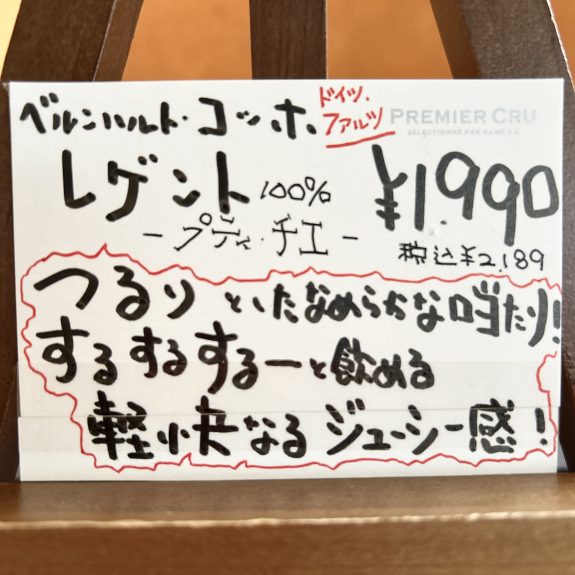 ベルンハルト・コッホ
ドイツ、
ファルツ
PREMIER CRU
レゲント 100%
¥1.990
-プティ・チエ-
税込¥2,189
つるりといたなめらかな口当たり!
するするするーと飲める
軽快なるジューシー感!